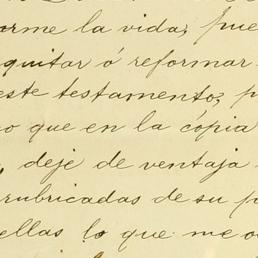 orme la vida, pue
quitar ó reformar
este testamento, p
o que en la cópia
, deje de ventaja
rubricadas de su p
ellas lo que me o